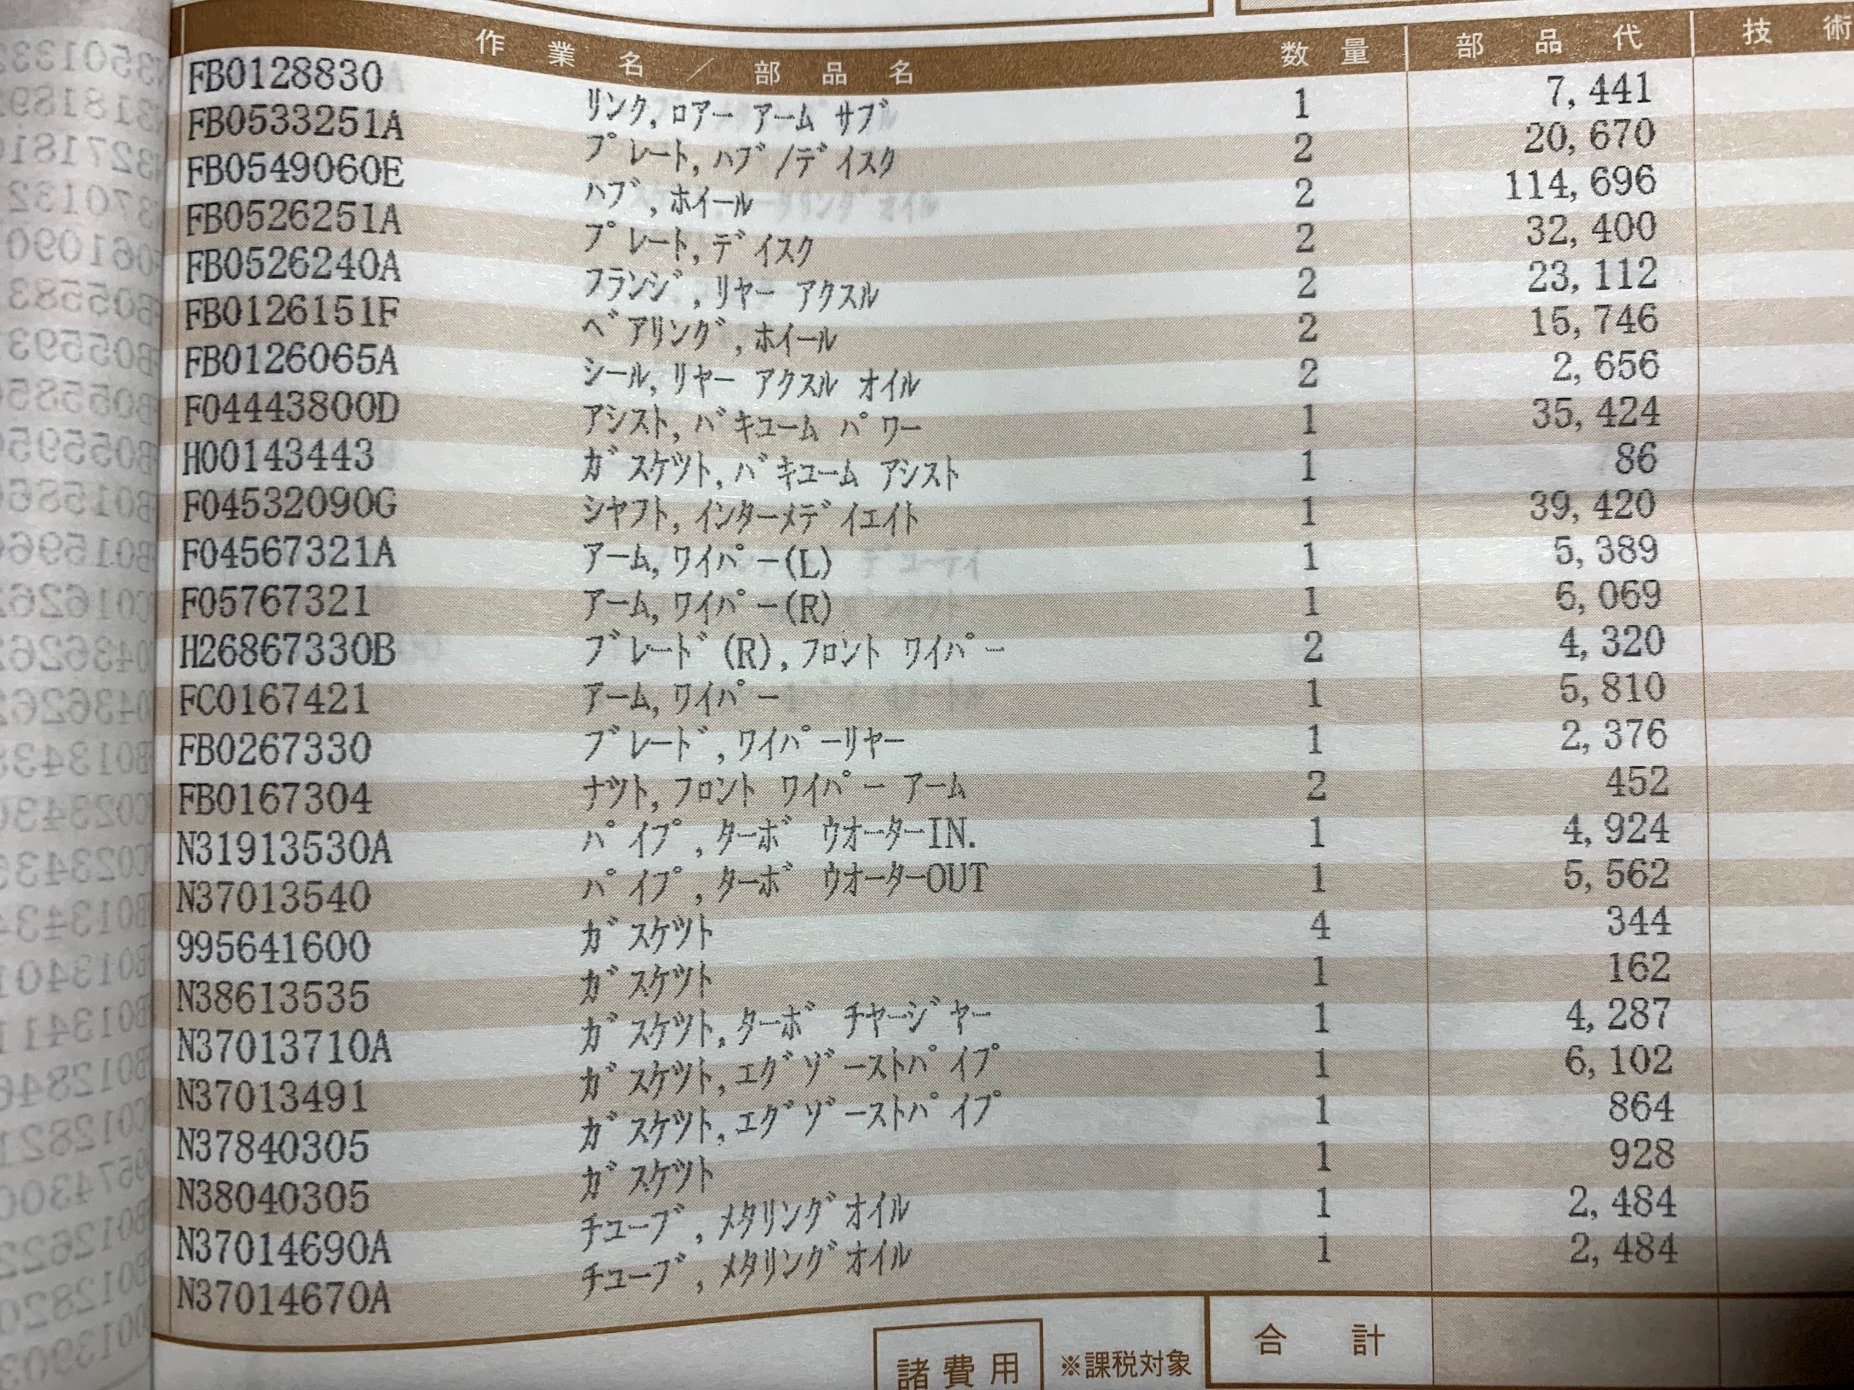 作業名／部品名 数量 部品代 技術
FB0128830 リンク,ロアー アーム サブ 1 7,441
FB0533251A プレート,ハブ/デイスク 2 20,670
FB0549060E ハブ,ホイール 2 114,696
FB0526251A プレート,デイスク 2 32,400
FB0526240A フランジ,リヤー アクスル 2 23,112
FB0126151F ベアリング,ホイール 2 15,746
FB0126065A シール,リヤー アクスル オイル 2 2,656
F04443800D アシスト,バキューム パワー 1 35,424
H00143443 ガスケツト,バキューム アシスト 1 86
F04532090G シヤフト,インターメデイエイト 1 39,420
F04567321A アーム,ワイパー(L) 1 5,389
F05767321 アーム,ワイパー(R) 1 6,069
H26867330B ブレード(R),フロント ワイパー 2 4,320
FC0167421 アーム,ワイパー 1 5,810
FB0267330 ブレード,ワイパーリヤー 1 2,376
FB0167304 ナツト,フロント ワイパー アーム 2 452
N31913530A パイプ,ターボ ウオーターIN. 1 4,924
N37013540 パイプ,ターボ ウオーターOUT 1 5,562
995641600 ガスケツト 4 344
N38613535 ガスケツト 1 162
N37013710A ガスケツト,ターボ チヤージヤー 1 4,287
N37013491 ガスケツト,エグゾーストパイプ 1 6,102
N37840305 ガスケツト,エグゾーストパイプ 1 864
N38040305 ガスケツト 1 928
N37014690A チユーブ,メタリングオイル 1 2,484
N37014670A チユーブ,メタリングオイル 1 2,484
諸費用 ※課税対象 合計